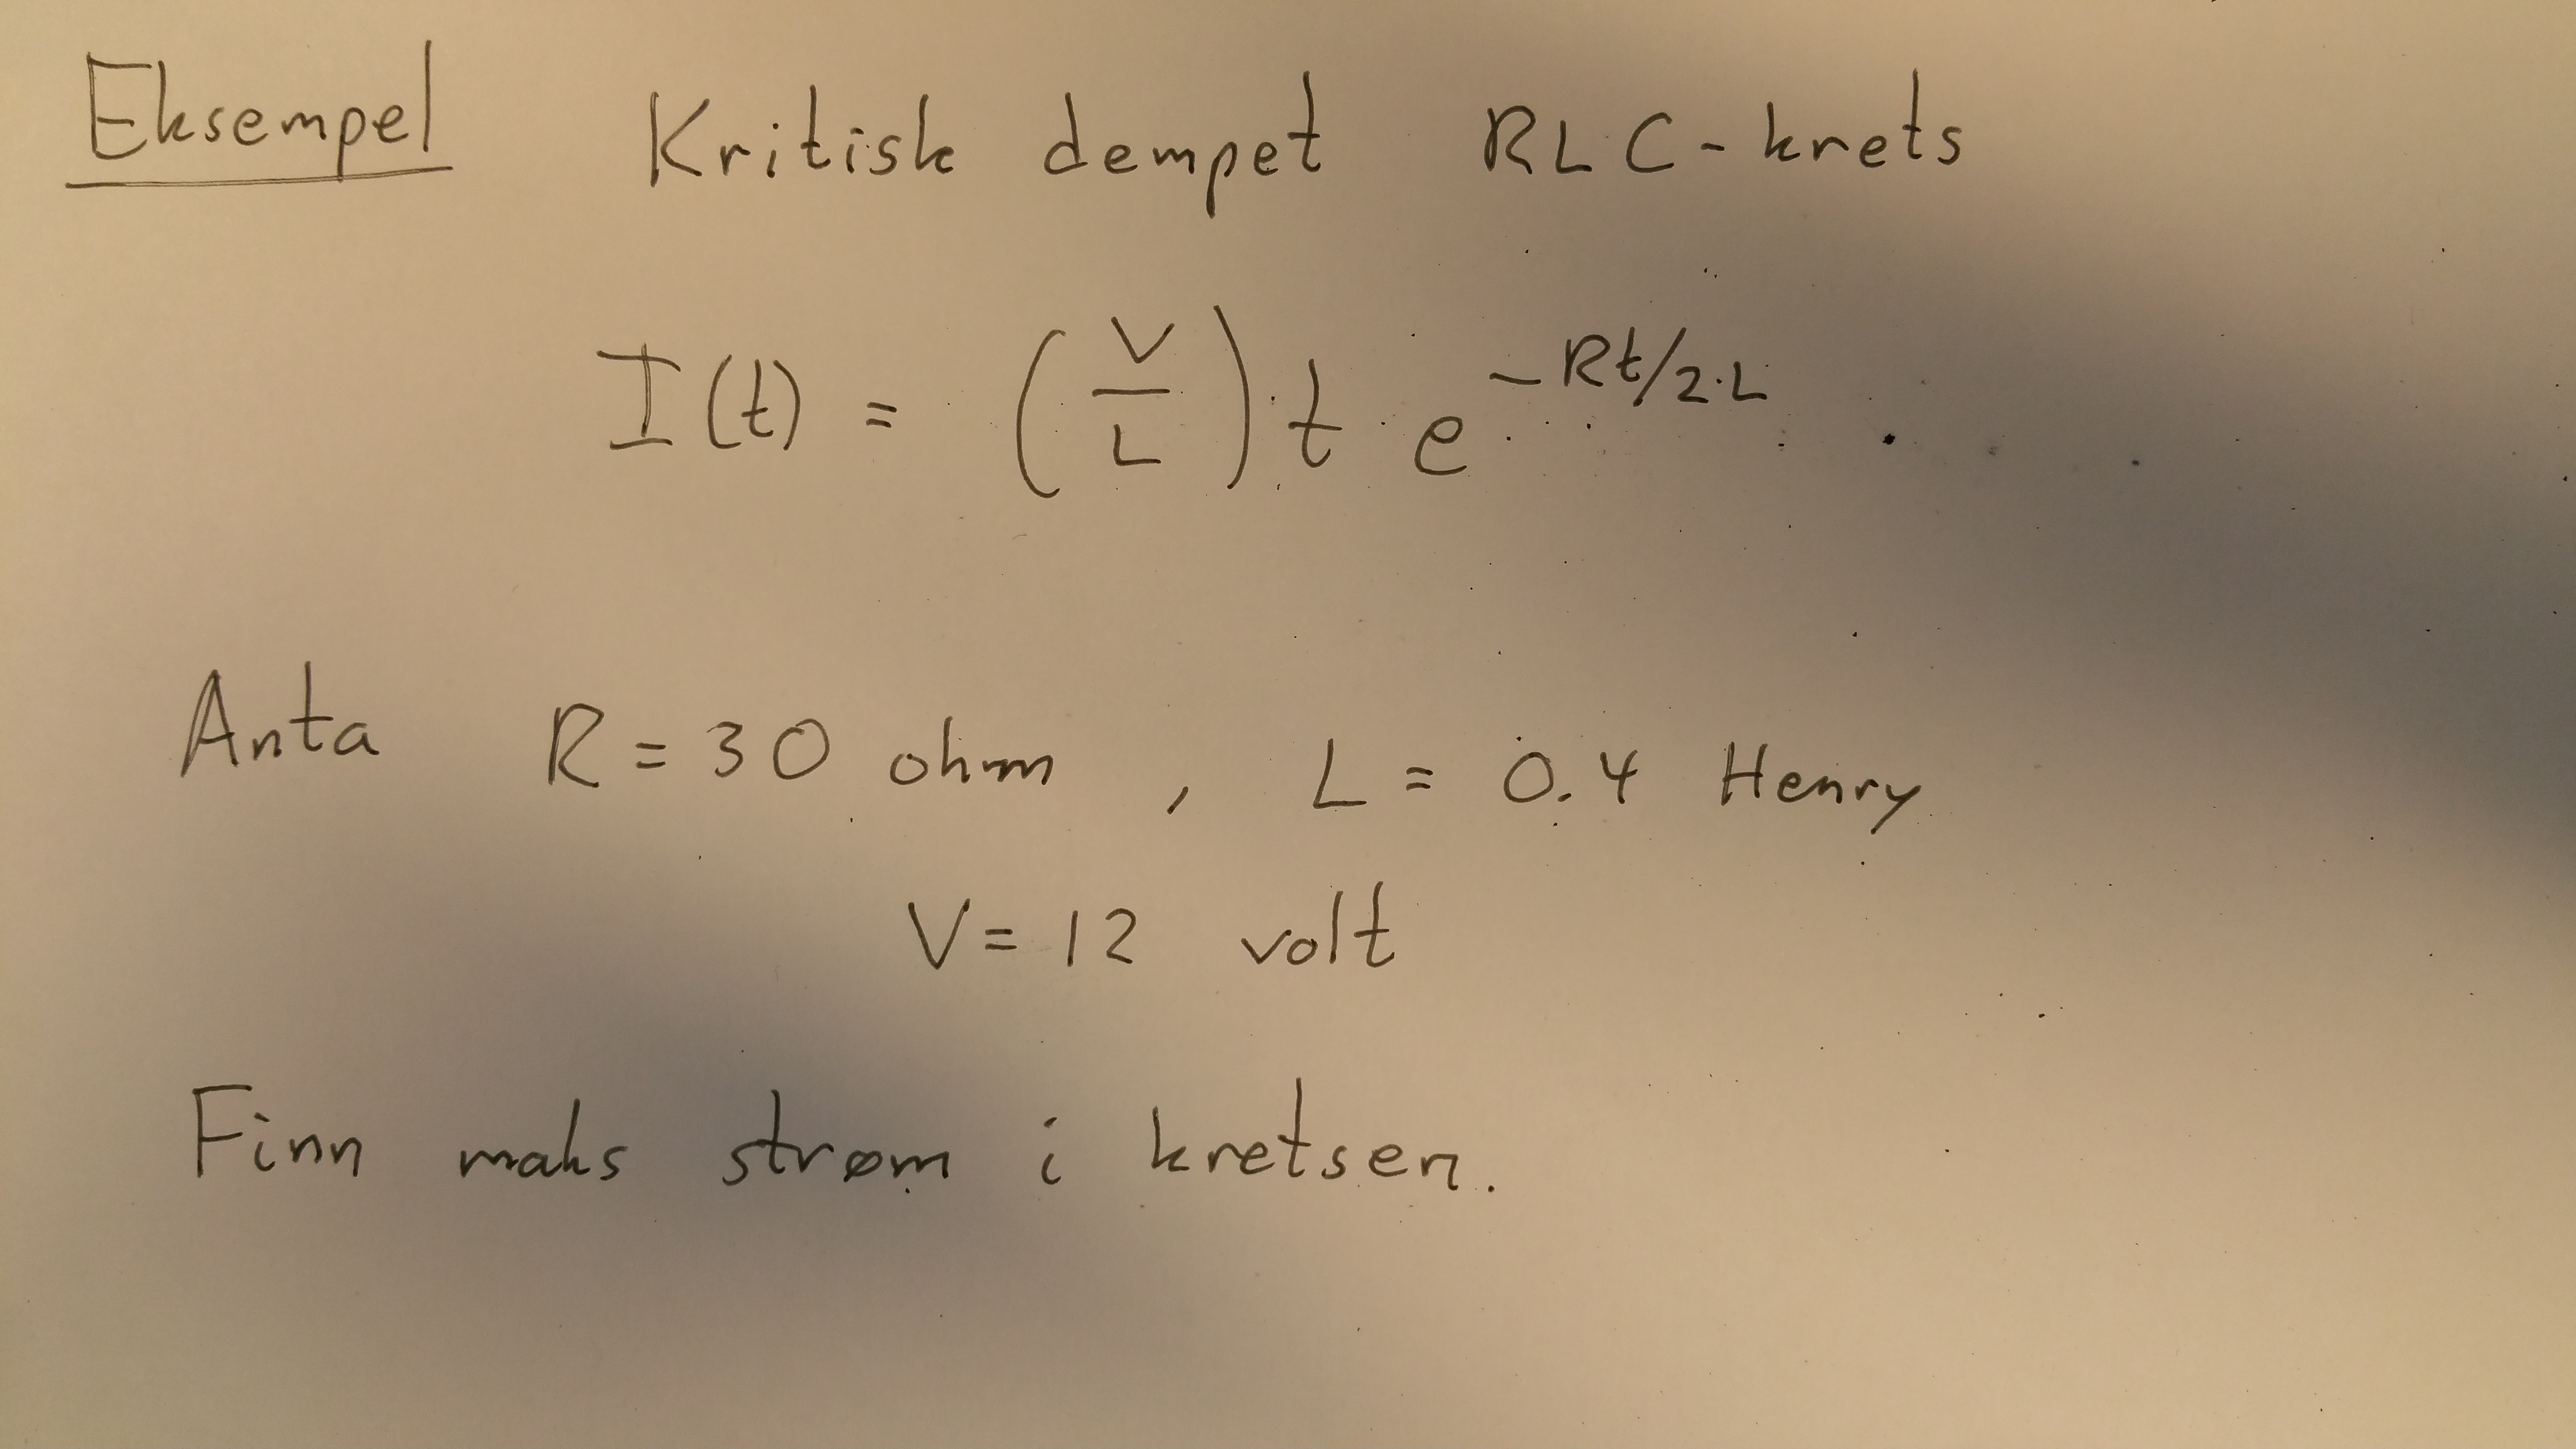 Eksempel Kritisk dempet RLC-krets
I(t) = (V/L) t e^{-Rt/2·L}
Anta R = 30 ohm , L = 0.4 Henry
V = 12 volt
Finn maks strøm i kretsen.